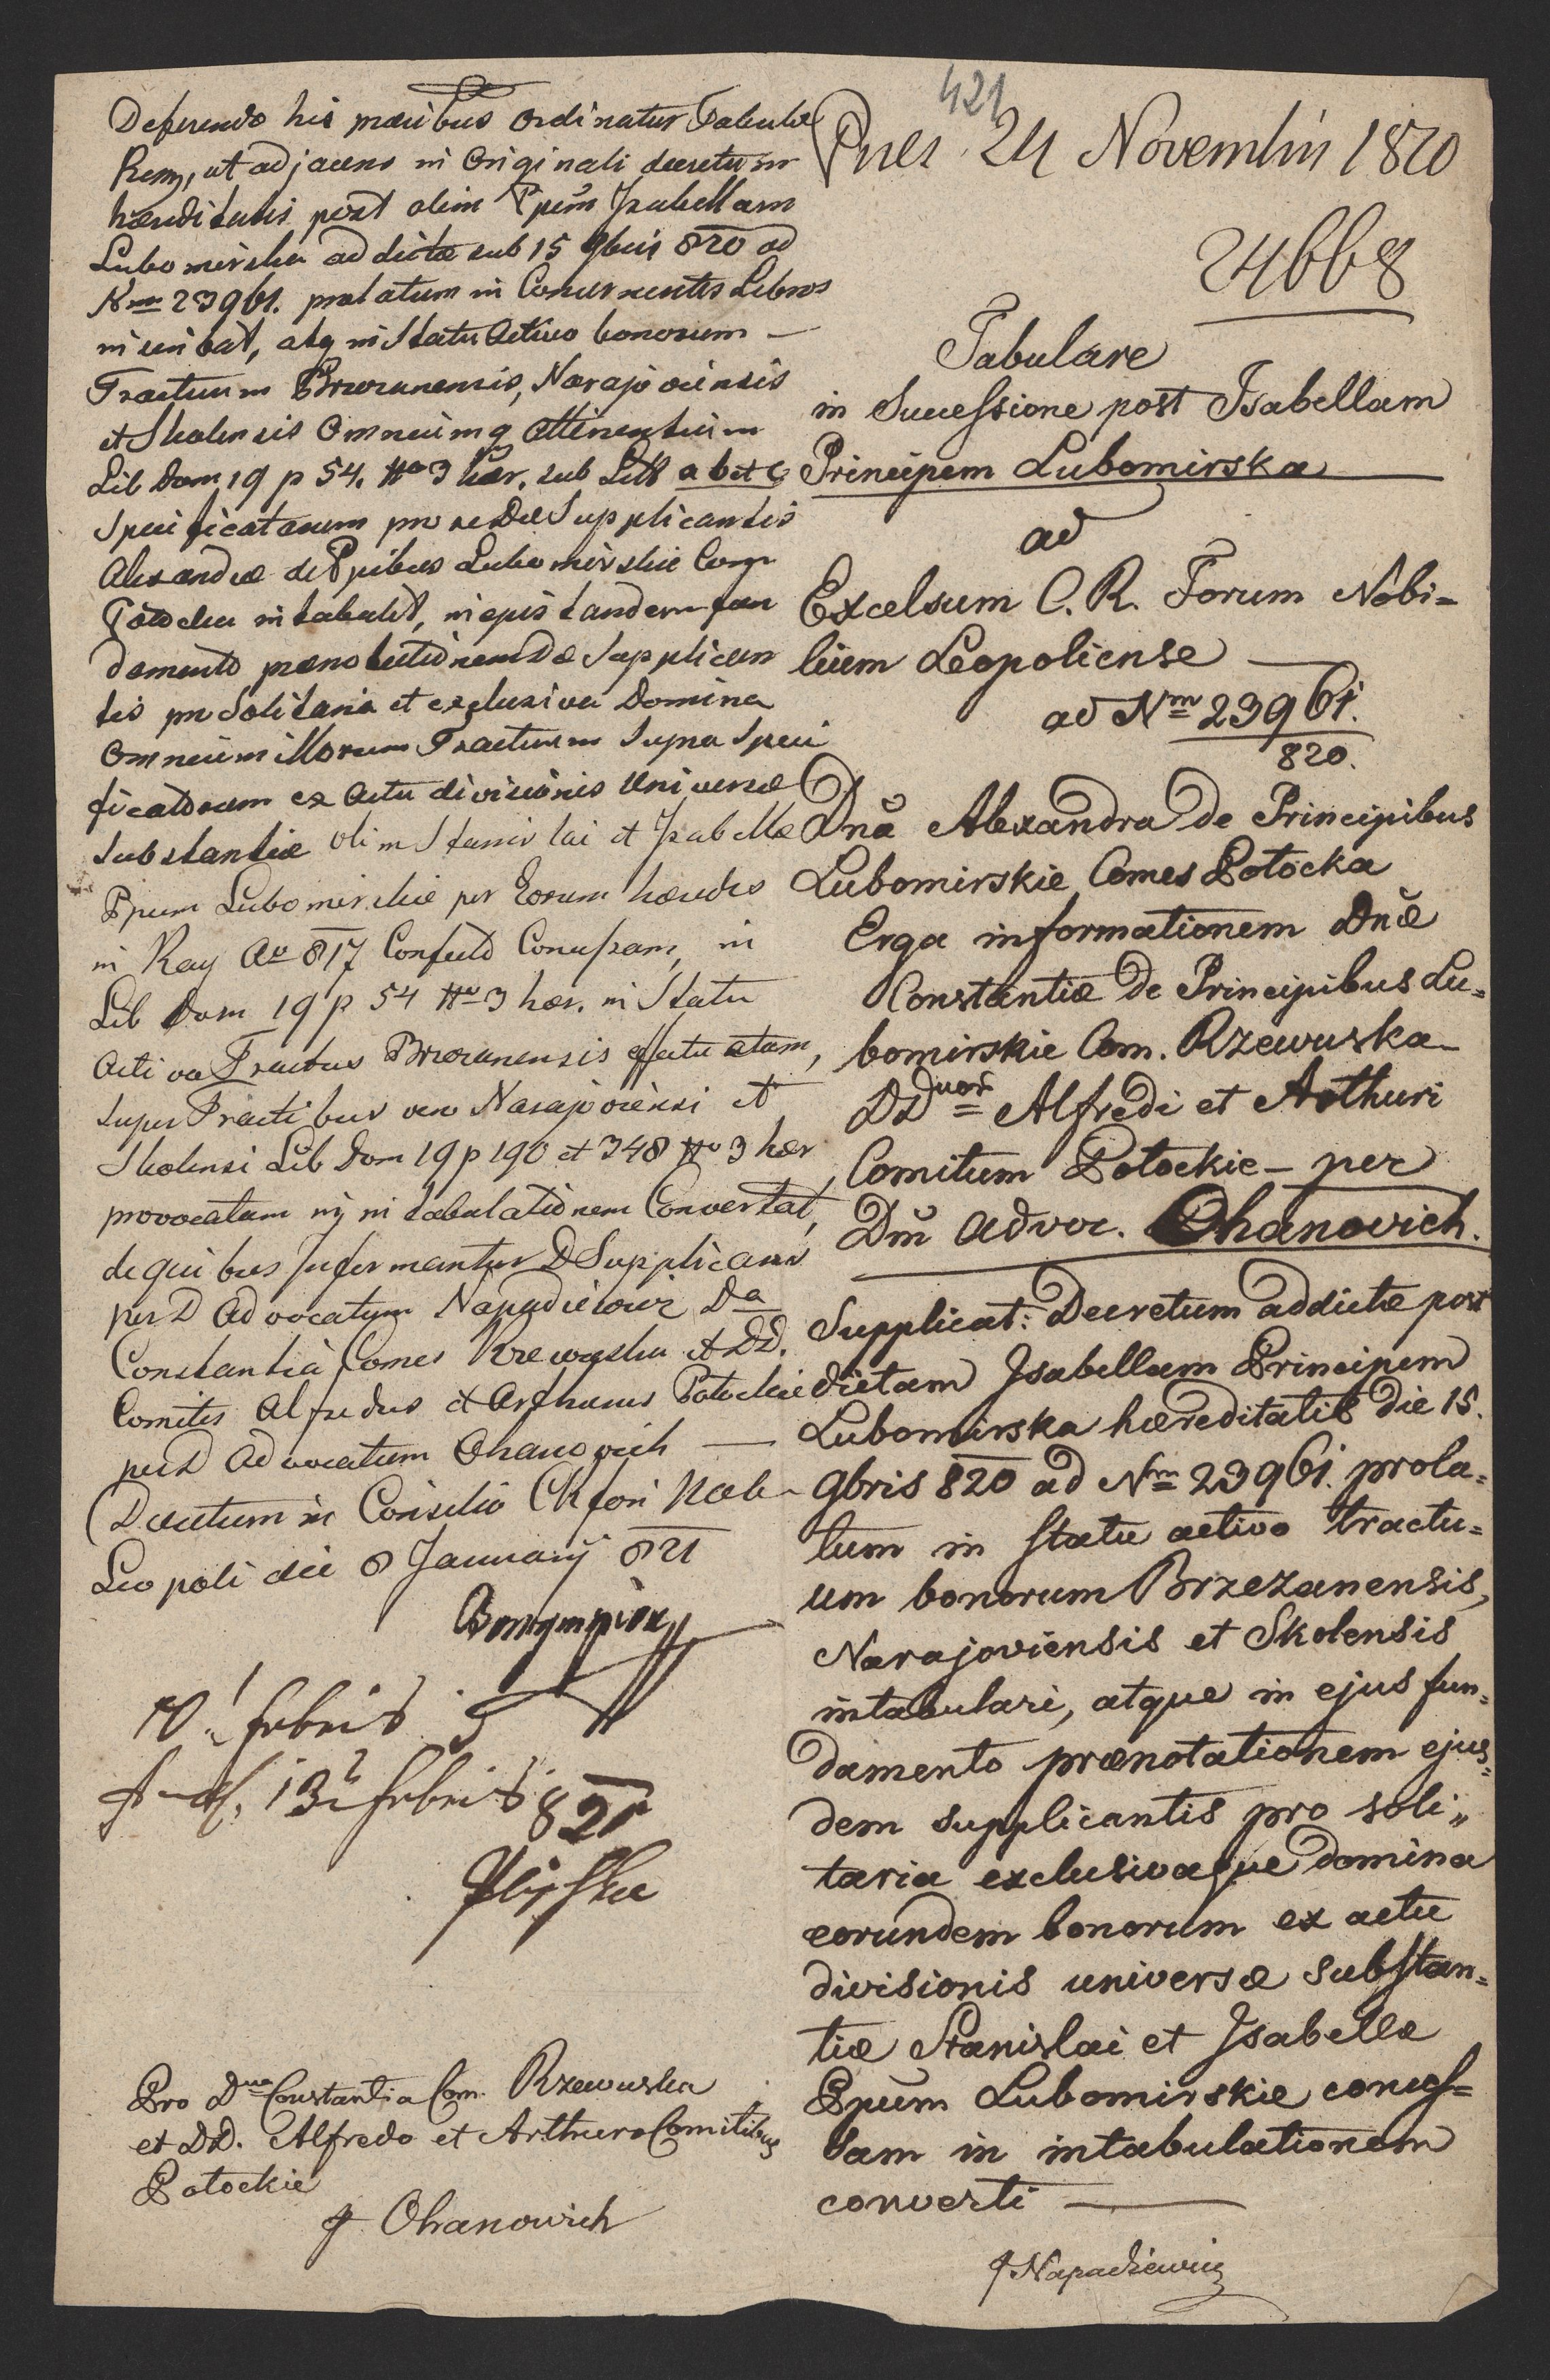 421
Pnes 24 Novembris 1820
24668
Tabulare
in Successione post Isabellam
Principem Lubomirska
ad
Excelsum C. R. Forum Nobi=
lium Leopoliense
ad Nm 23961.
820.
Dna Alexandra de Principibus
Lubomirskie Comes Potocka
Erga informationem Dnæ
Constantiæ de Principibus Lu=
bomirskie Com. Rzewuska
DDnor Alfredi et Arthuri
Comitum Potockie – per
Dm Advoc. Ohanovich.
Supplicat: Decretum addictæ post
dictam Isabellam Principem
Lubomirska hæreditatis die 15.
9bris 820 ad Nm 23961. prola=
tum in Statu activo tractu=
um bonorum Brzezanensis,
Narajoviensis et Skolensis
intabulari, atque in ejus fun=
damento prænotationem ejus=
dem supplicantis pro soli„
taria exclusivaque domina
eorundem bonorum ex actu
divisionis universæ substan=
tiæ Stanislai et Isabellæ
Ppum Lubomirskie concess=
sam in intabulationem
converti
J Napadiewicz
Deferendo his precibus Ordinatur Tabulæ
Reg, ut adjacens in Originali decretum
hæreditatis post olim Ppem Isabellam
Lubomirska addictæ sub 15 9bris 820 ad
Nm 23961. prolatum in Concernentes Libros
inscribat, atq in Statu Activo bonorum –
Tractuum Brzezanensis, Narajoviensis
et Skolensis Omniumq Attinentium
Lib Dom 19 p 54. No 3 hær. sub Litt a b et c
Specificatarum pro re Dæ Supplicantis
Alexandræ de Ppibus Lubomirskie Com
Potocka intabulet, in ejus tandem fun
damento prænotationem Dæ Supplican
tis pro Solitaria et exclusiva Domina
Omnium illorum Tractuum Supra Speci
ficatorum ex Actu divisionis Universæ
Substantiæ olim Stanislai et Isabellæ
Ppum Lubomirskie per Eorum hæredes
in Ao 817 Confecto Concessam, in
Lib Dom 19 p 54 No 3 hær. in Statu
Activo Tractus Brzezanensis effectuatam,
super Tractibus vero Narajoviensi et
Skolensi Lib Dom 19 p 190 et 348 No 3 hær
provocatam in intabulationem Convertat,
de quibus Informantur D Supplicans
per D Advocatum Napadiewicz Da
Constantia Comes Rzewuska et DD.
Comites Alfredus et Arthurus Potockie
per D Advocatum Ohanowich
Decretum in Consilio CR fori Nob
Leopoli die 8 January 821
10. febris
13 febris 821
Pro Dna Constantia Com. Rzewuska
et DD. Alfredo et Arthuro Comitibus
Potockie
J Ohanowich